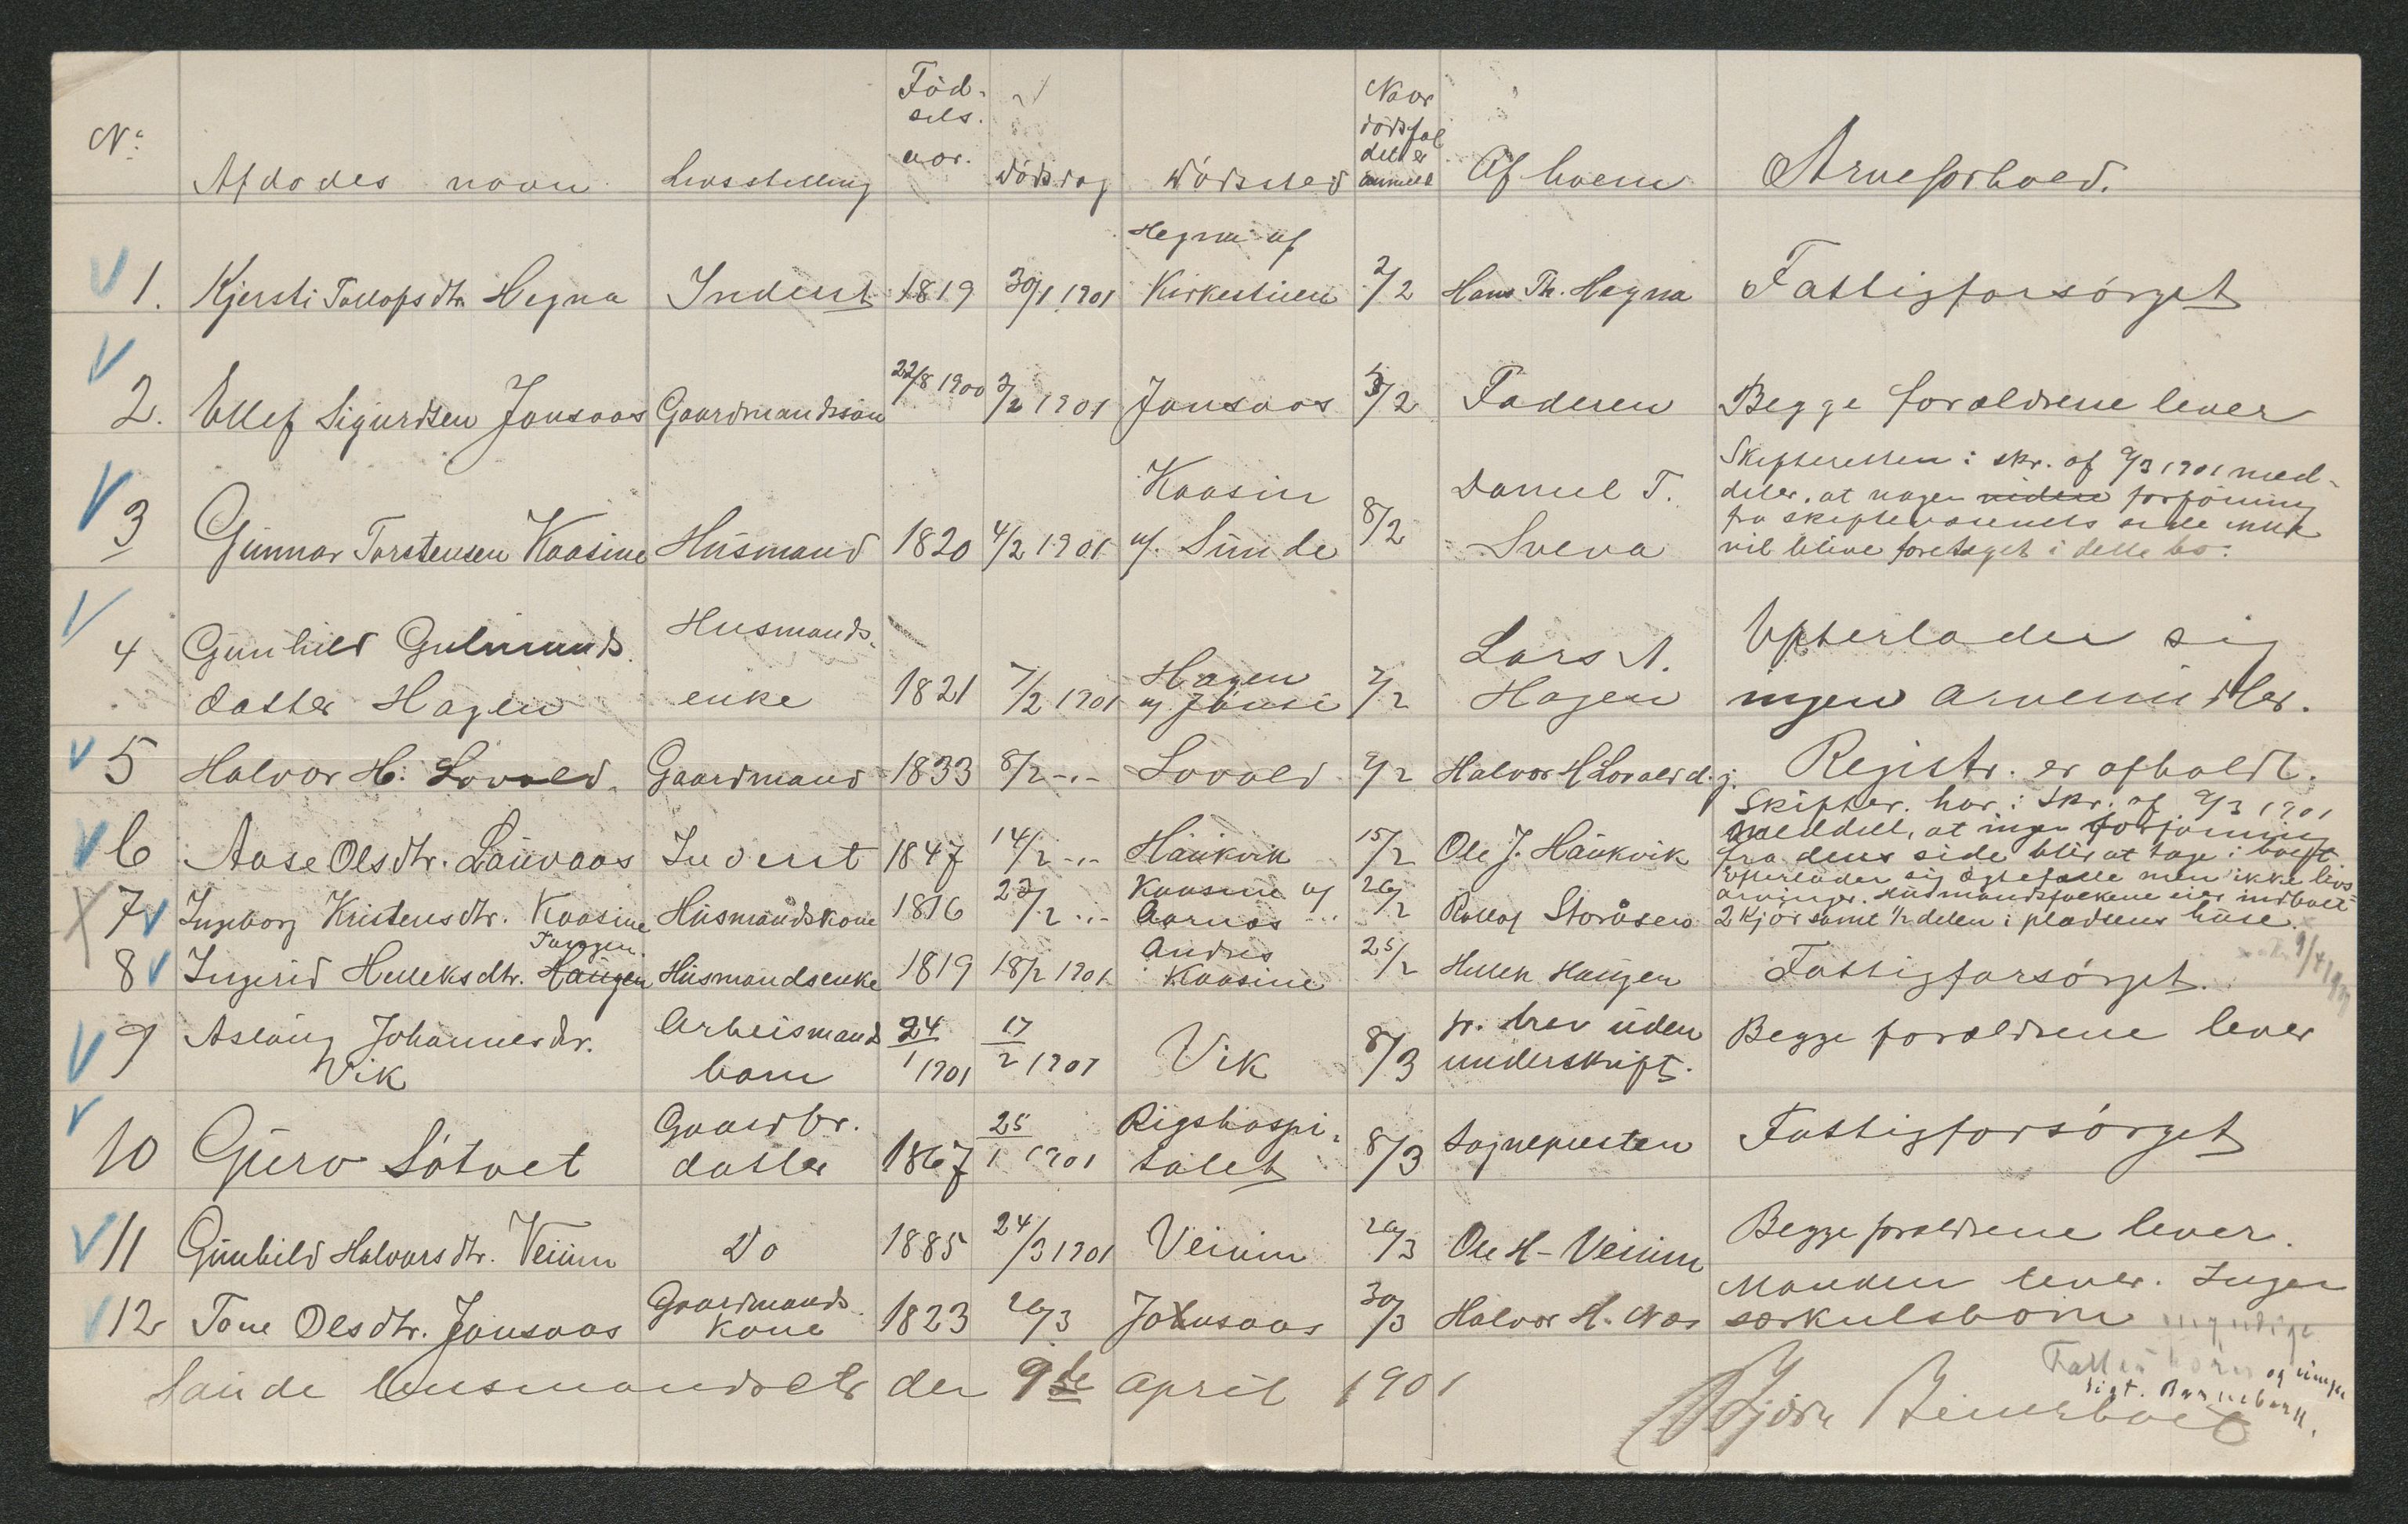 No Afdødes navn Livsstilling Fød-sels-aar. Dødsdag Dødssted Naar dødsfaldet er anmeld Af hvem Arveforhold.
1. Kjersti Tollofsdtr. Hegna Inderst 1819 30/1 1901 Hegna af Kirkestuen 2/2 Hans Th. Hegna Fattigforsørget
2. Ellef Sigurdsen Jønsaas Gaardmandssøn 22/8 1900 2/2 1901 Jønsaas 5/2 Faderen Begge forældrene lever
3 Gunnar Torstensen Kaasine Husmand 1820 4/2 1901 Kaasin u. Sunde 8/2 Daniel T. Sveva
Skifteretten i skr. af 9/3 1901 med-
deler, at nogen videre forføining
fra skiftevæsenets side ikke
vil blive foretaget i dette bo.
4 Gunhild Gulmunds-
datter Hagen Husmands-
enke 1821 7/2 1901 Hagen u. Jønsi 7/2 Lars A.
Hagen Efterlader sig
ingen arvemidler.
5 Halvor H. Lovald. Gaardmand 1833 8/2 -"- Lovald 9/2 Halvor H Lovald d.y. Registr. er afholdt.
6 Aase Olsdtr. Lauvaas Inderst 1847 14/2 -"- Haukvik 15/2 Ole J. Haukvik
Skifter. har i Skr. af 9/3 1901
meddelt, at ingen forføining
fra dens side blir at tage i boet.
7 Ingeborg Kristensdtr. Kaasine Husmandskone 1816 23/2 -"- Kaasine u. Aarnæs 26/2 Rollof Storåsen
Efterlader sig ægtefælle men ikke livs-
arvinger. Husmandsfolkene eier indbo et
2 kjør samt 1/2 delen i pladsens huse.
8 Ingerid Helleksdtr. Haugen Husmandsenke 1819 18/2 1901 Kaasine 25/2 Hellek Haugen Fattigforsørget.
9 Aslaug Johannesdtr.
Vik Arbeismands
barn 24/1 1901 17/2 1901 Vik 8/3 pr. brev uden
underskrift. Begge forældrene lever
10 Guro Søtvet Gaardbr.
datter 1867 25/1 1901 Rigshospi-
talet 8/3 Sognepresten Fattigforsørget
11 Gunhild Halvorsdtr. Veium Do 1885 24/3 1901 Veium 26/3 Ole H. Veium Begge forældrene lever.
12 Tone Olsdtr. Jønsaas Gaardmands
kone 1823 26/3 Jønsaas 30/3 Halvor H. Næs Manden lever. Ingen
særkulsbørn umyndige
Fælles børn og
Barnebarn.
Saude lensmandsetr den 9de april 1901
Bjørn